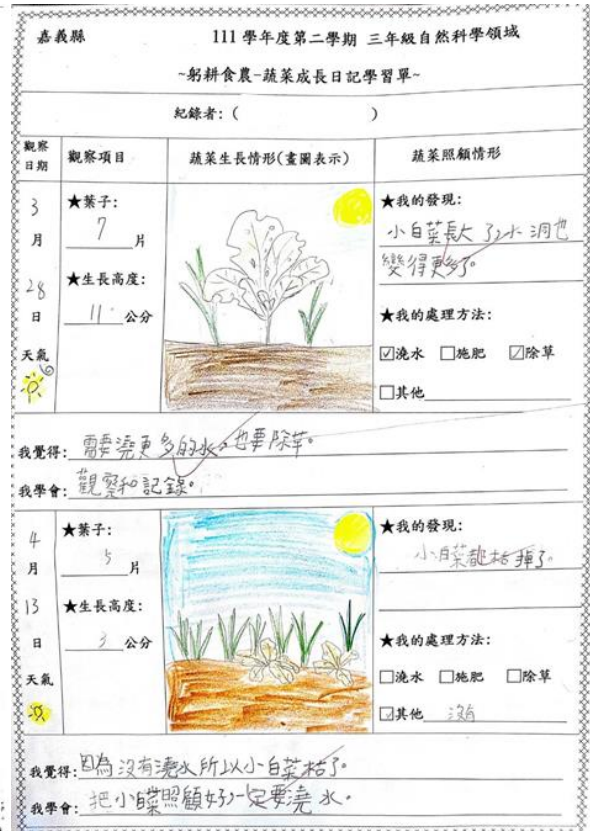 嘉義縣 111 學年度第二學期 三年級自然科學領域
~躬耕食農-蔬菜成長日記學習單~
紀錄者：( )
觀察日期 觀察項目 蔬菜生長情形(畫圖表示) 蔬菜照顧情形
3
月
28
日
天氣
★葉子：
7 片
★生長高度：
11 公分
★我的發現：
小白菜長大了，洞也
變得更多了。
★我的處理方法：
☑澆水 □施肥 ☑除草
□其他
我覺得：需要澆更多的水，也要除草。
我學會：觀察和記錄。
4
月
13
日
天氣
★葉子：
5 片
★生長高度：
3 公分
★我的發現：
小白菜都枯掉了。
★我的處理方法：
□澆水 □施肥 □除草
☑其他 沒有
我覺得：因為沒有澆水所以小白菜枯了。
我學會：把小白菜照顧好一定要澆水。